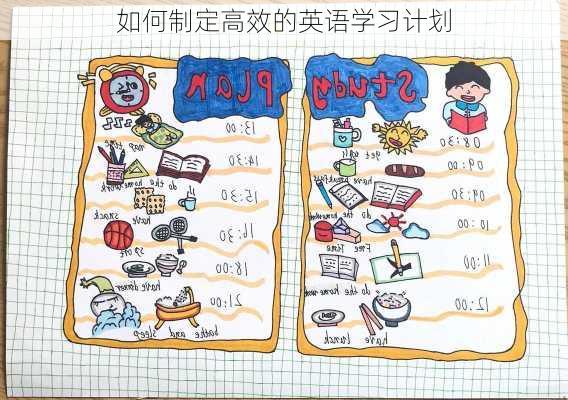 如何制定高效的英语学习计划
Study
08:30
get up
09:00
have breakfast
09:30
do the homework
10:00
Free time
11:00
do the home work
12:00
have lunch
Plan
ZZZ
13:00
nap time
14:30
do the homework
15:30
have snack
16:30
18:00
have
21:00
bathe and sleep